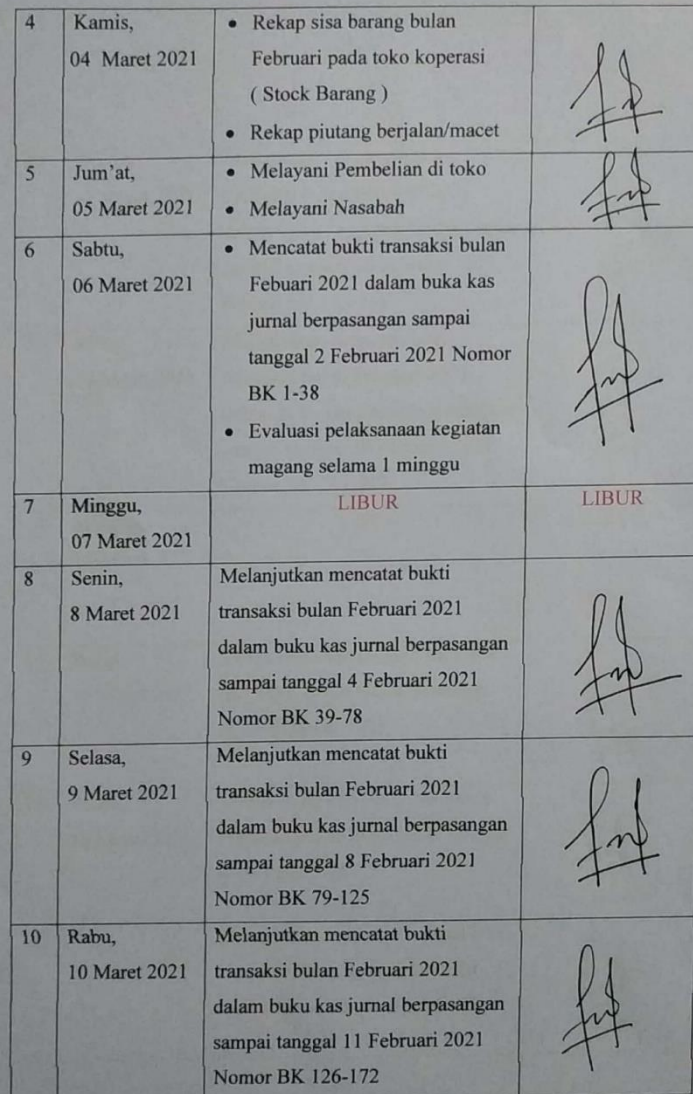 4 Kamis, • Rekap sisa barang bulan
04 Maret 2021 Februari pada toko koperasi
( Stock Barang )
• Rekap piutang berjalan/macet
5 Jum'at, • Melayani Pembelian di toko
05 Maret 2021 • Melayani Nasabah
6 Sabtu, • Mencatat bukti transaksi bulan
06 Maret 2021 Febuari 2021 dalam buka kas
jurnal berpasangan sampai
tanggal 2 Februari 2021 Nomor
BK 1-38
• Evaluasi pelaksanaan kegiatan
magang selama 1 minggu
7 Minggu, LIBUR LIBUR
07 Maret 2021
8 Senin, Melanjutkan mencatat bukti
8 Maret 2021 transaksi bulan Februari 2021
dalam buku kas jurnal berpasangan
sampai tanggal 4 Februari 2021
Nomor BK 39-78
9 Selasa, Melanjutkan mencatat bukti
9 Maret 2021 transaksi bulan Februari 2021
dalam buku kas jurnal berpasangan
sampai tanggal 8 Februari 2021
Nomor BK 79-125
10 Rabu, Melanjutkan mencatat bukti
10 Maret 2021 transaksi bulan Februari 2021
dalam buku kas jurnal berpasangan
sampai tanggal 11 Februari 2021
Nomor BK 126-172